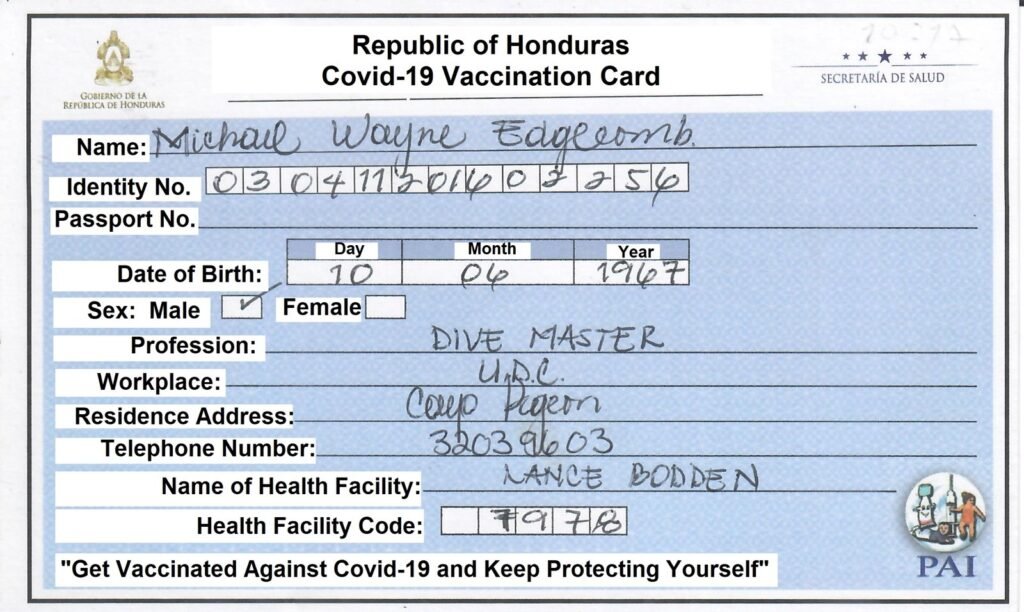 GOBIERNO DE LA
REPÚBLICA DE HONDURAS
Republic of Honduras
Covid-19 Vaccination Card
SECRETARÍA DE SALUD
Name: Michael Wayne Edgecomb.
Identity No. 0304112016022 56
Passport No.
Day Month Year
Date of Birth: 10 06 1967
Sex: Male ✓ Female
Profession: DIVE MASTER
Workplace: U.D.C.
Residence Address: Cayo Pigeon
Telephone Number: 32039603
Name of Health Facility: LANCE BODDEN
Health Facility Code: 7978
"Get Vaccinated Against Covid-19 and Keep Protecting Yourself"
PAI